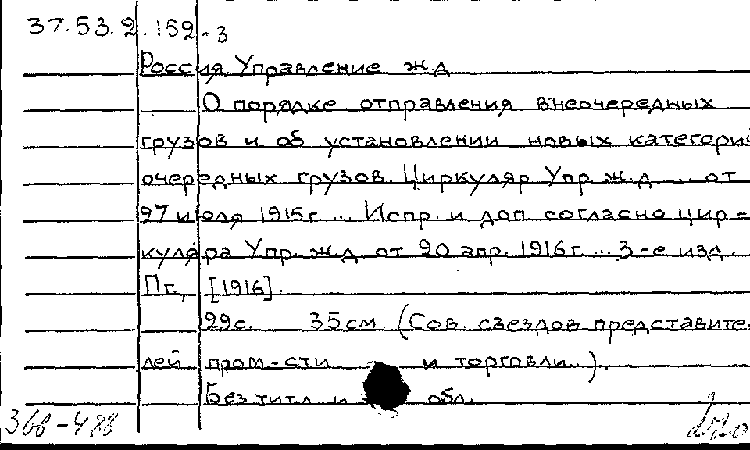 37.53.2.152-3
Россия Управление ж д
О порядке отправления внеочередных
грузов и об установлении новых категорий
очередных грузов. Циркуляр Упр. ж. д. ... от
27 июля 1915 г. ... Испр. и доп. согласно цир-
куляра Упр. ж. д. от 20 апр. 1916 г. ... 3-е изд.
Пг., [1916].
29 с. 35 см (Сов. съездов представите-
лей пром-сти и торговли).
Без титл. и обл.
366-488